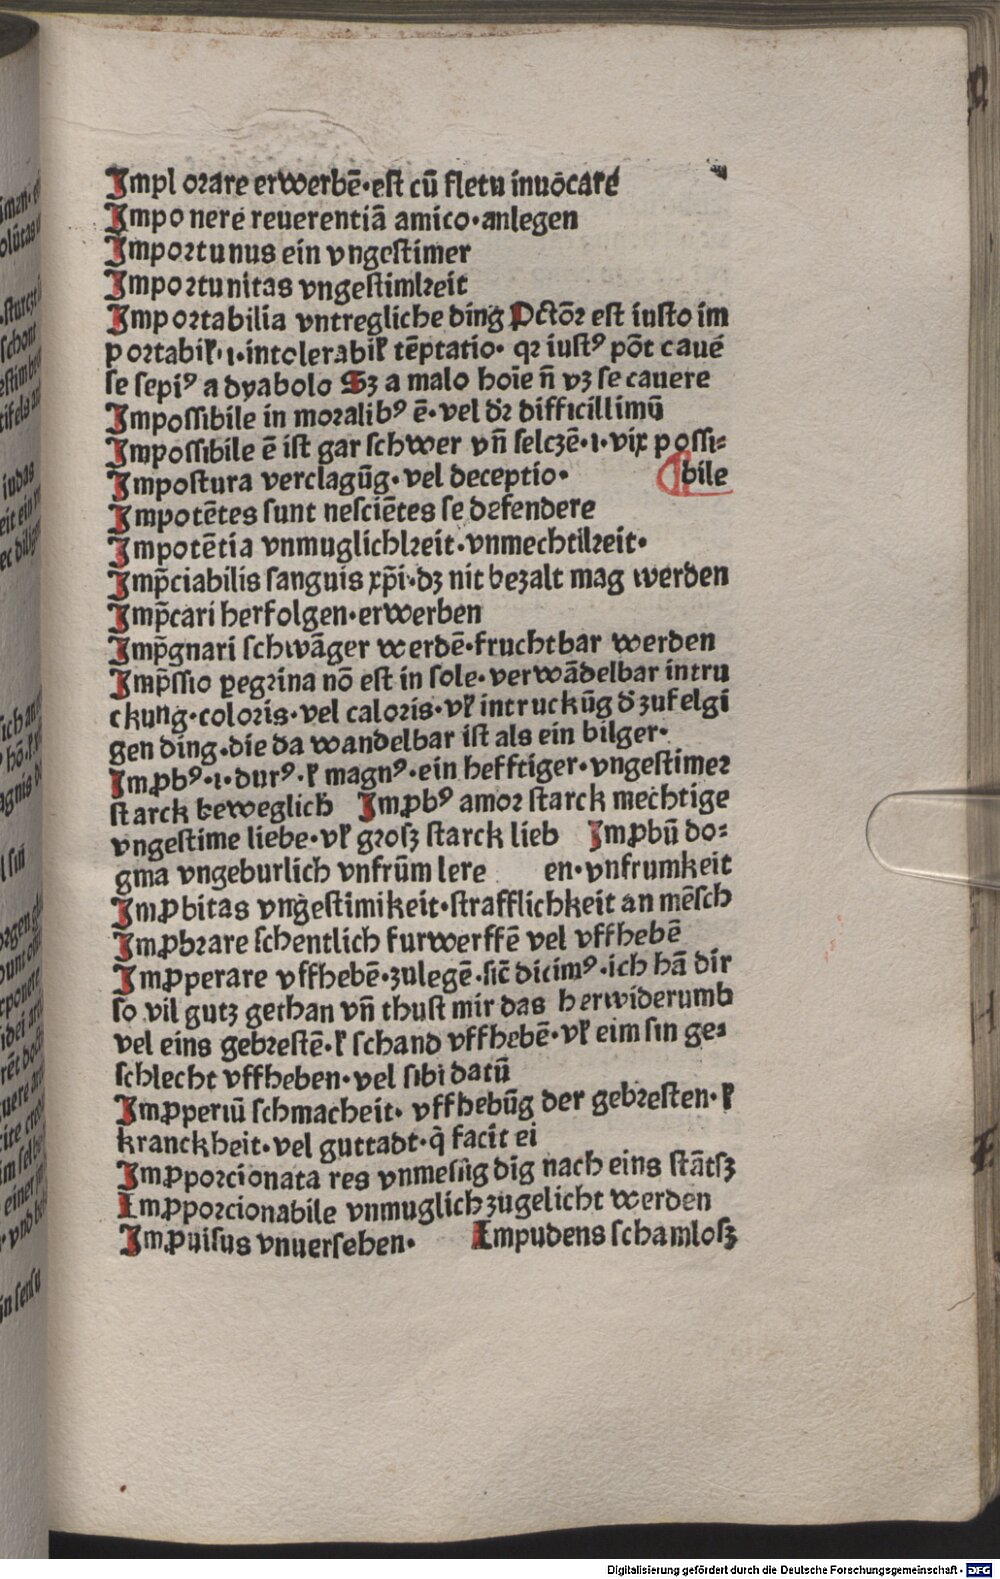 Implorare erwerbē·est cū fletu inuocare
Imponere reuerentiā amico·anlegen
Importunus ein vngestimer
Importunitas vngestimkeit
Importabilia vntregliche ding Pctōꝛ est iusto im
portabiꝉ·ı·intolerabiꝉ tēptatio· qꝛ iustꝰ pōt cauē
se sepiꝰ a dyabolo Sꝫ a malo hoīe n̄ vꝫ se cauere
Impossibile in moralibꝰ ē·vel dꝛ difficillimū
Impossibile ē ist gar schwer vn̄ selczē·ı·vix possi⸗
Impostura verclagūg·vel deceptio· bile
Impotētes sunt nesciētes se defendere
Impotētia vnmuglichkeit·vnmechtikeit·
Imp̄ciabilis sanguis xp̄i·dꝫ nit bezalt mag werden
Imp̄cari herfolgen·erwerben
Imp̄gnari schwāger werdē·fruchtbar werden
Imp̄ssio ꝑegrina nō est in sole·verwādelbar intru
ckung·coloris·vel caloris·vꝉ intruckūg d̄ zufelgi
gen ding·die da wandelbar ist als ein bilger·
Imꝓbꝰ·ı·durꝰ·ꝉ magnꝰ·ein hefftiger·vngestimer
starck beweglich Imꝓbꝰ amor starck mechtige
vngestime liebe·vꝉ grosꝫ starck lieb Imꝓbū do⸗
gma vngeburlich vnfrūm lere en·vnfrumkeit
Imꝓbitas vngestimikeit·strafflichkeit an mēsch
Imꝓbrare schentlich furwerffē vel vffhebē
Imꝓperare vffhebē·zulegē·sic̄ dicimꝰ·ich hā dir
so vil gutz gethan vn̄ thust mir das herwiderumb
vel eins gebrestē·ꝉ schand vffhebē·vꝉ eim sin ge⸗
schlecht vffheben·vel sibi datū
Imꝓperiū schmacheit· vffhebūg der gebresten·ꝉ
kranckheit·vel guttadt·q̄ facit ei
Imꝓporcionata res vnmesūgdig nach eins stātsꝫ
Imꝓporcionabile vnmuglich zugelicht werden
Imꝓuisus vnuersehen· Impudens schamlosꝫ
Digitalisierung gefördert durch die Deutsche Forschungsgemeinschaft - DFG